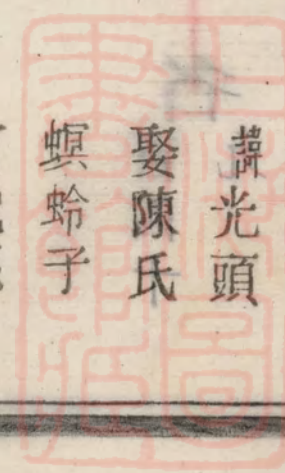 諱光頭
娶陳氏
螟蛉子